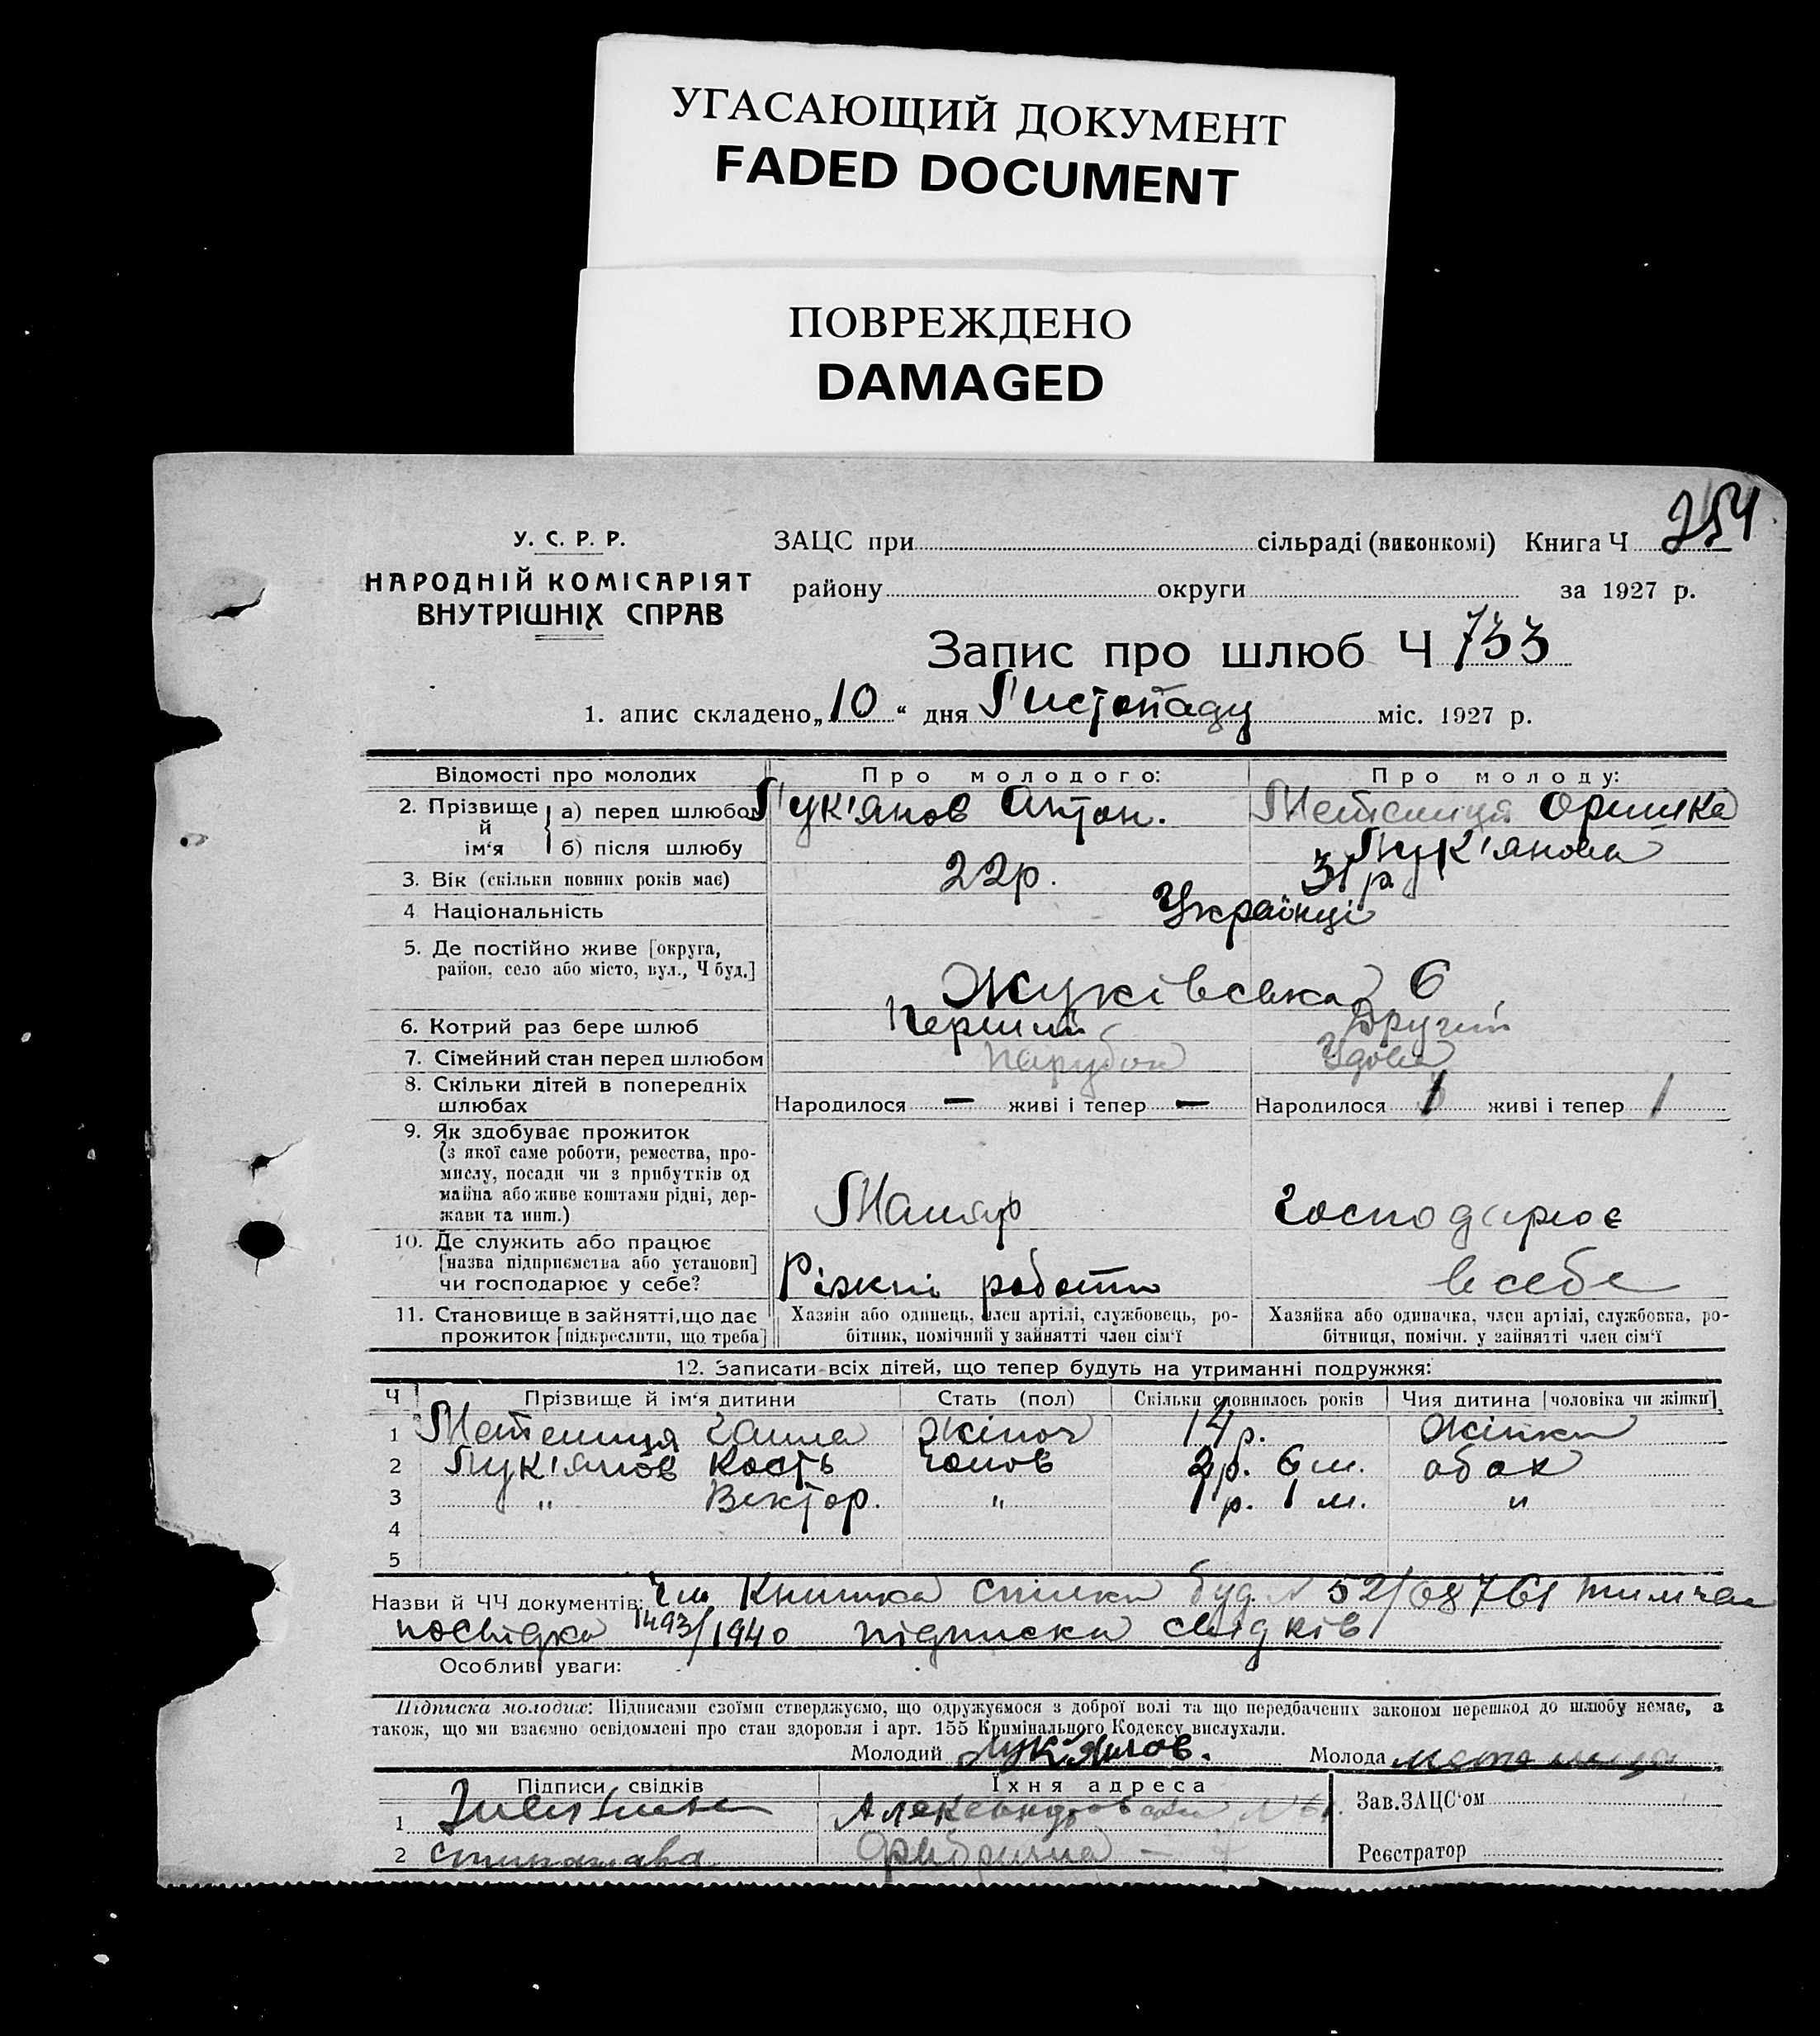 УГАСАЮЩИЙ ДОКУМЕНТ
FADED DOCUMENT
ПОВРЕЖДЕНО
DAMAGED
254
У. С. Р. Р.
НАРОДНІЙ КОМІСАРІЯТ
ВНУТРІШНІХ СПРАВ
ЗАЦС при сільраді (виконкомі) Книга Ч
району округи за 1927 р.
Запис про шлюб Ч 733
1. апис складено „10“ дня Листопаду міс. 1927 р.
Відомості про молодих Про молодого: Про молоду:
2. Прізвище й ім'я а) перед шлюбом Лук'янов Антон. Метелиця Оришка
б) після шлюбу Лук'янова
3. Вік (скільки повних років має) 22р. 31 р
4 Національність Українці
5. Де постійно живе [округа,
район, село або місто, вул., Ч буд.] Жуківська 6
6. Котрий раз бере шлюб Перший Другий
7. Сімейний стан перед шлюбом парубок Удова
8. Скільки дітей в попередніх
шлюбах Народилося — живі і тепер — Народилося 1 живі і тепер 1
9. Як здобуває прожиток
(з якої саме роботи, ремества, про-
мислу, посади чи з прибутків од
майна або живе коштами рідні, дер-
жави та инш.) Маляр Господарює
10. Де служить або працює
[назва підприємства або установи]
чи господарює у себе? Різкні роботи в себе
11. Становище в зайнятті, що дає
прожиток [підкреслити, що треба]
Хазяін або одинець, член артілі, службовець, ро-
бітник, помічний у зайнятті член сім'ї
Хазяйка або одиначка, член артілі, службовка, ро-
бітниця, помічн. у зайнятті член сім'ї
12. Записати всіх дітей, що тепер будуть на утриманні подружжя:
Ч Прізвище й ім'я дитини Стать (пол) Скільки сповнилось років Чия дитина [чоловіка чи жінки]
1 Метелиця Ганна жіноч 14р. жінки
2 Лук'янов Кость чолов 2р. 6 м. обох
3 „ Віктор. „ 1 р. 1 м. „
4
5
Назви й ЧЧ документів: Книжка спілки буд. N 52/08761 тимчас
посвідка 1493/1940 підписка свідків
Особливі уваги:
Підписка молодих: Підписами своїми стверджуємо, що одружуємося з доброї волі та що передбачених законом перешкод до шлюбу немає, а
також, що ми взаємно освідомлені про стан здоровля і арт. 155 Кримінального Кодексу вислухали.
Молодий Лук'янов. Молода Метелиця
Підписи свідків Їхня адреса
1 Александровська N 61. Зав.ЗАЦС'ом
2 Фабрична — Реєстратор